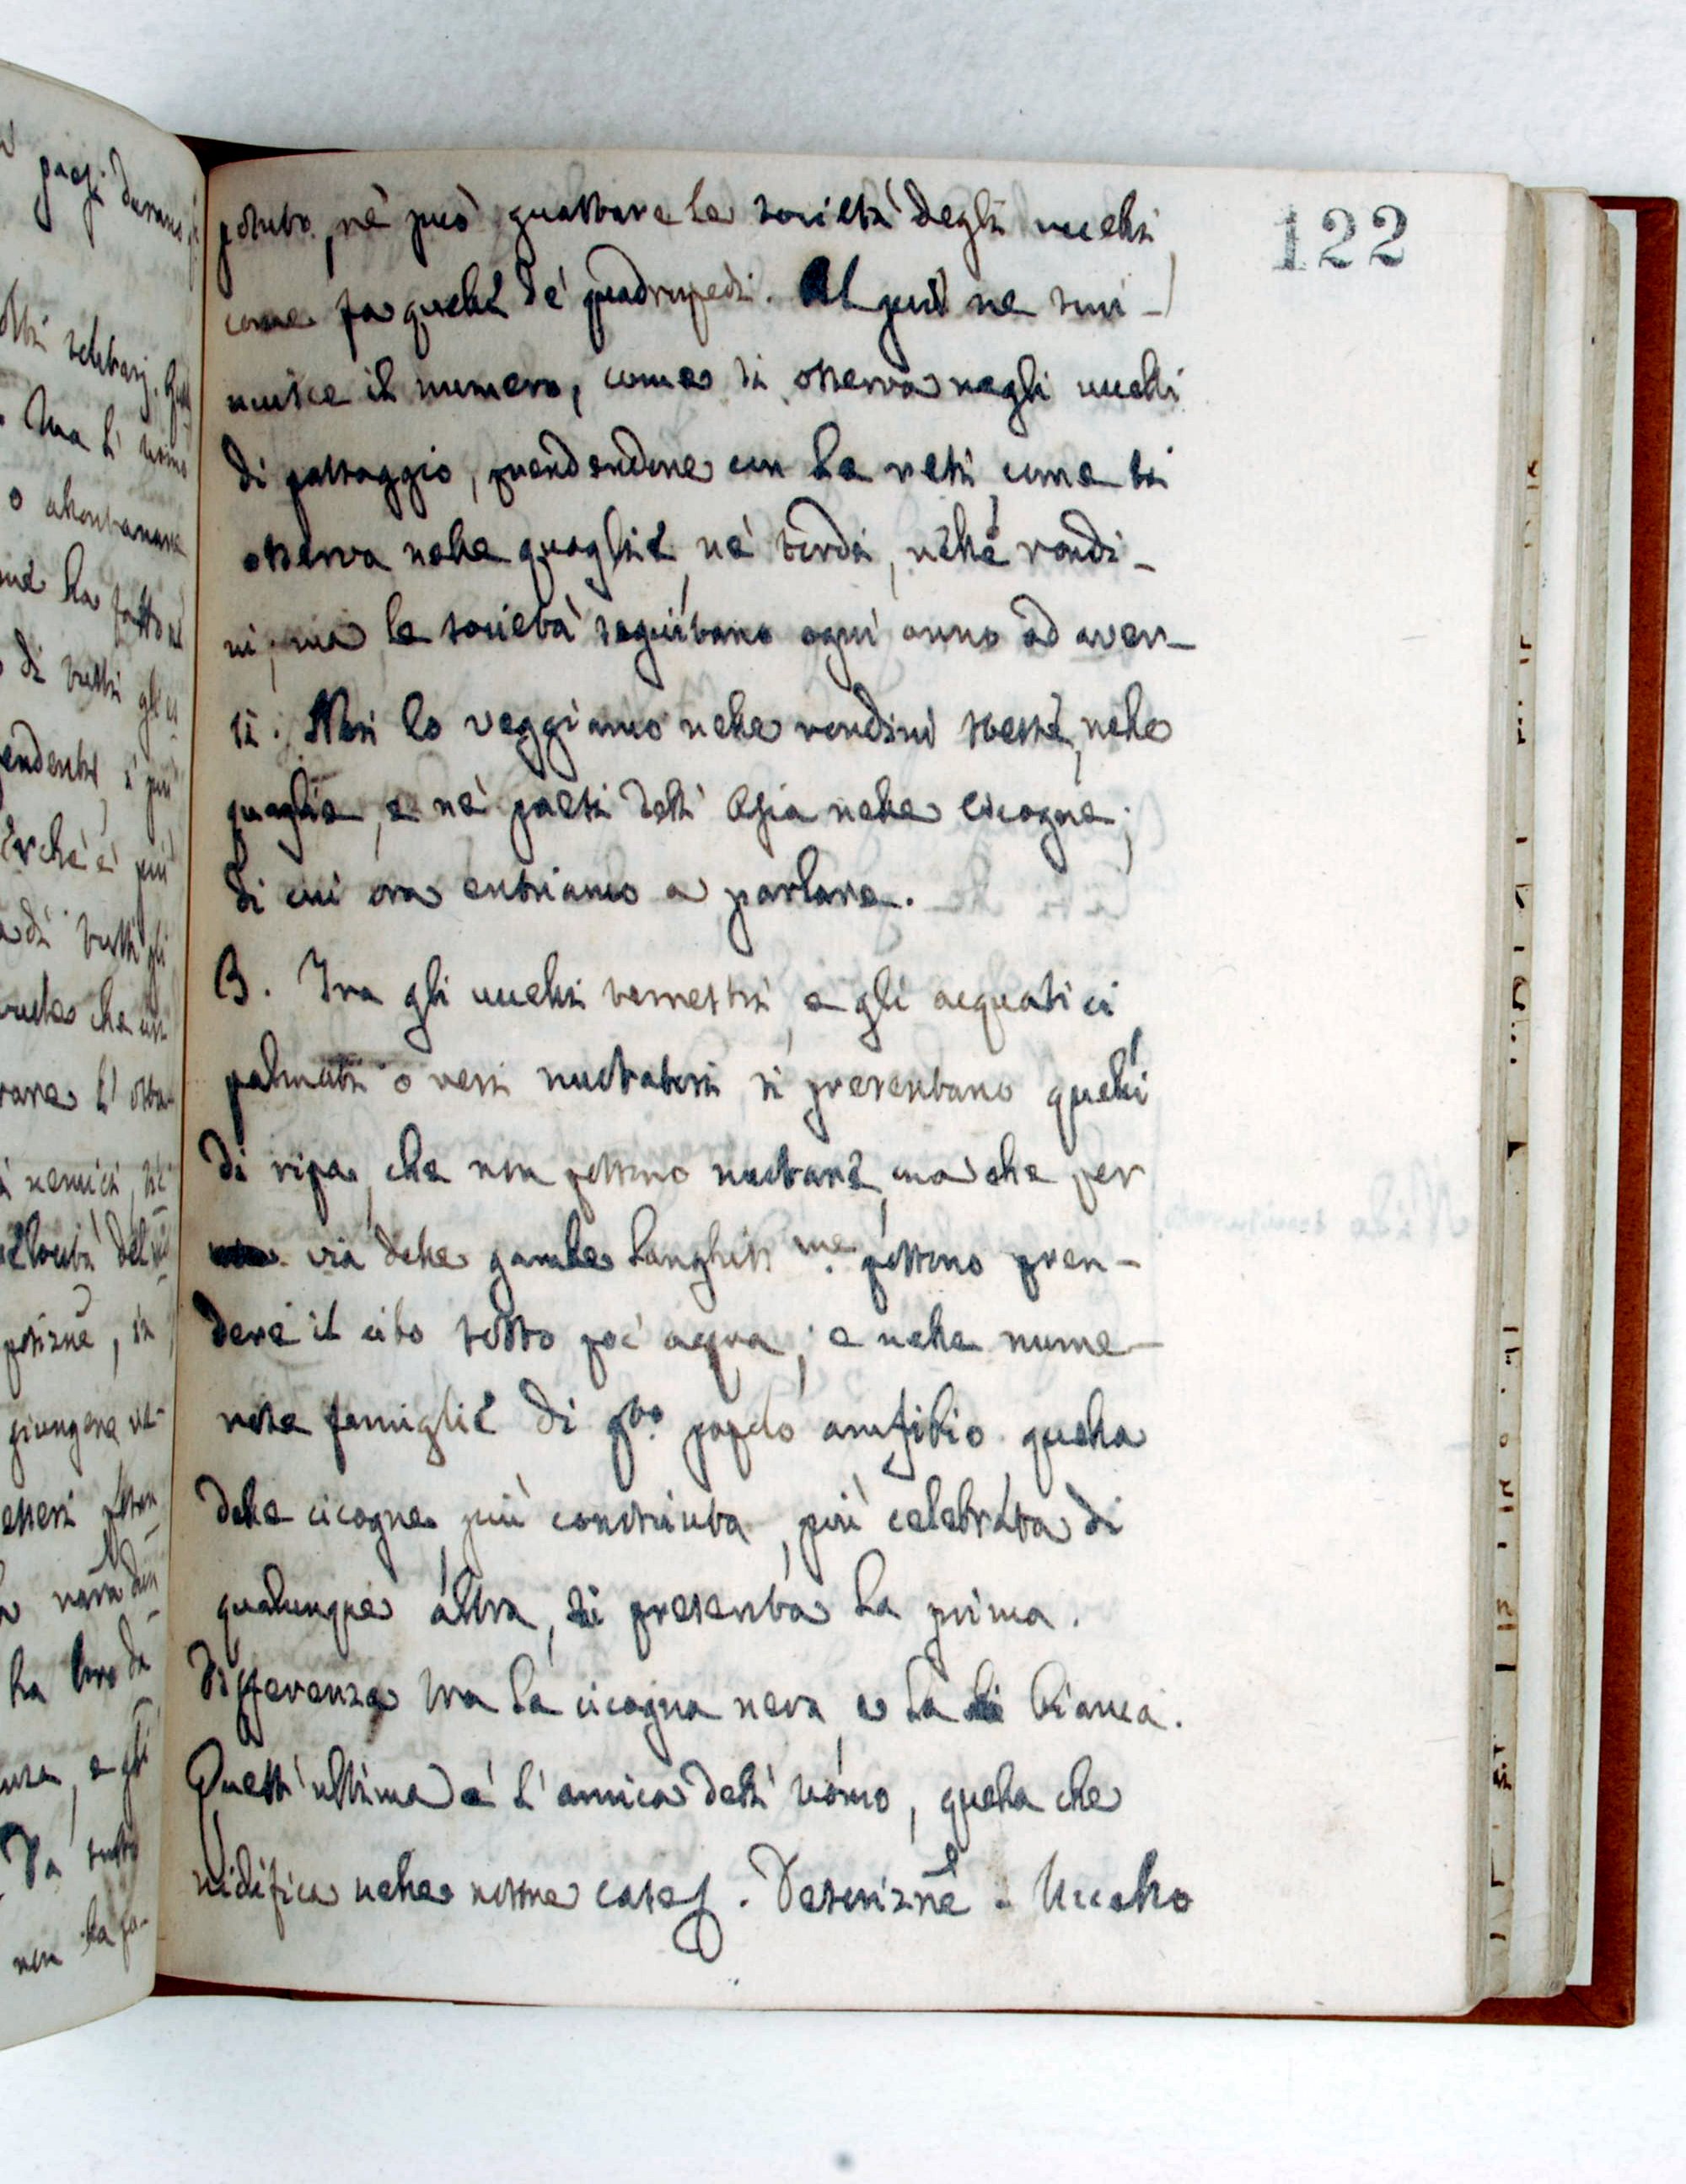 122
potuto, nè può guastare le società degli uccelli,
come fa quelle de' quadrupedi. Al più ne smi-
nuisce il numero, come si osserva negli uccelli
di passaggio, prendendone con le reti come si
osserva nelle quaglie, ne' tordi, nelle rondi-
ni; ma le società seguitano ogni anno ad aver-
si. Noi lo veggiamo nelle rondini stesse, nelle
quaglie, e ne' paesi dell' Asia nelle cicogne;
di cui ora entriamo a parlare.
3. Tra gli uccelli terrestri, e gli acquatici
palmati o veri nuotatori si presentano quelli
di ripa, che non possono nuotare, ma che per
via delle gambe lunghiss.me possono pren-
dere il cibo sotto poc' acqua; e nelle nume-
rose famiglie di q.to popolo anfibio quella
delle cicogne più conosciuta, più celebrata di
qualunque altra, si presenta la prima.
Differenza tra la cicogna nera, e la bianca.
Quest' ultima è l' amica dell' uomo, quella che
nidifica nelle nostre case. Descrizne - Uccello
paesi
solitarj.
Ma l' uomo
o allontanare
ha fatto
di tutti gli
perchè è più
di tutti gli
che
nemici
del
giungere
esseri
ha
e gli
Da tutto
non ha